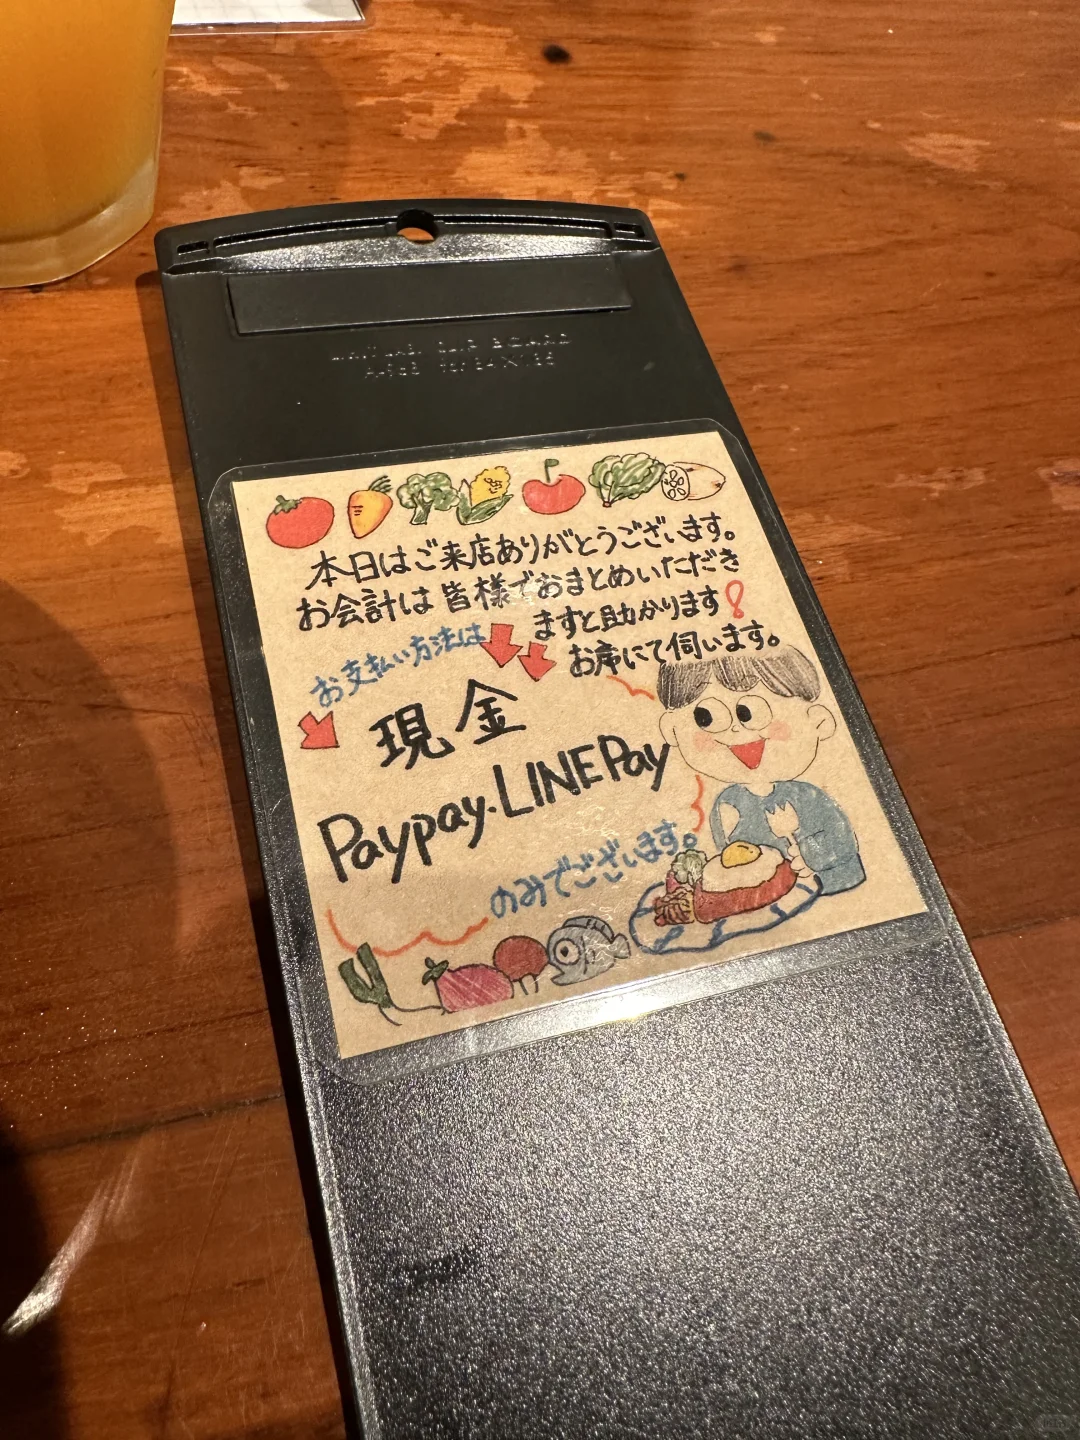 本日はご来店ありがとうございます。
お会計は皆様でおまとめいただき
ますと助かります!
お席にて伺います。
お支払い方法は
現金
Paypay・LINEPay
のみでございます。